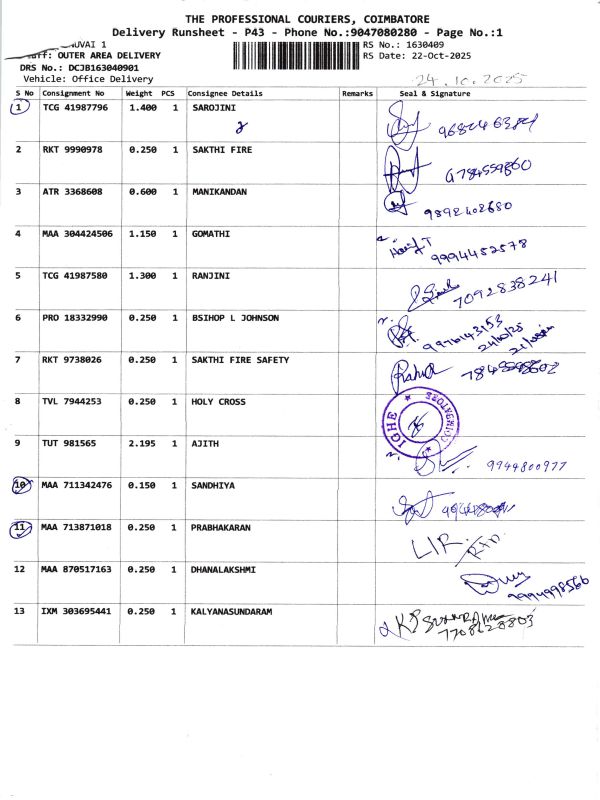 THE PROFESSIONAL COURIERS, COIMBATORE
Delivery Runsheet - P43 - Phone No.:9047080280 - Page No.:1
OUTER AREA DELIVERY
DRS No.: DCJB163040901
Vehicle: Office Delivery
RS No.: 1630409
RS Date: 22-Oct-2025
24.10.2025
S No Consignment No Weight PCS Consignee Details Remarks Seal & Signature
1 TCG 41987796 1.400 1 SAROJINI
2 RKT 9990978 0.250 1 SAKTHI FIRE
3 ATR 3368608 0.600 1 MANIKANDAN 9892402680
4 MAA 304424506 1.150 1 GOMATHI 9994452578
5 TCG 41987580 1.300 1 RANJINI 7092838241
6 PRO 18332990 0.250 1 BSIHOP L JOHNSON 9976143153
7 RKT 9738026 0.250 1 SAKTHI FIRE SAFETY
8 TVL 7944253 0.250 1 HOLY CROSS
9 TUT 981565 2.195 1 AJITH 9944800977
10 MAA 711342476 0.150 1 SANDHIYA
11 MAA 713871018 0.250 1 PRABHAKARAN
12 MAA 870517163 0.250 1 DHANALAKSHMI 9994998566
13 IXM 303695441 0.250 1 KALYANASUNDARAM